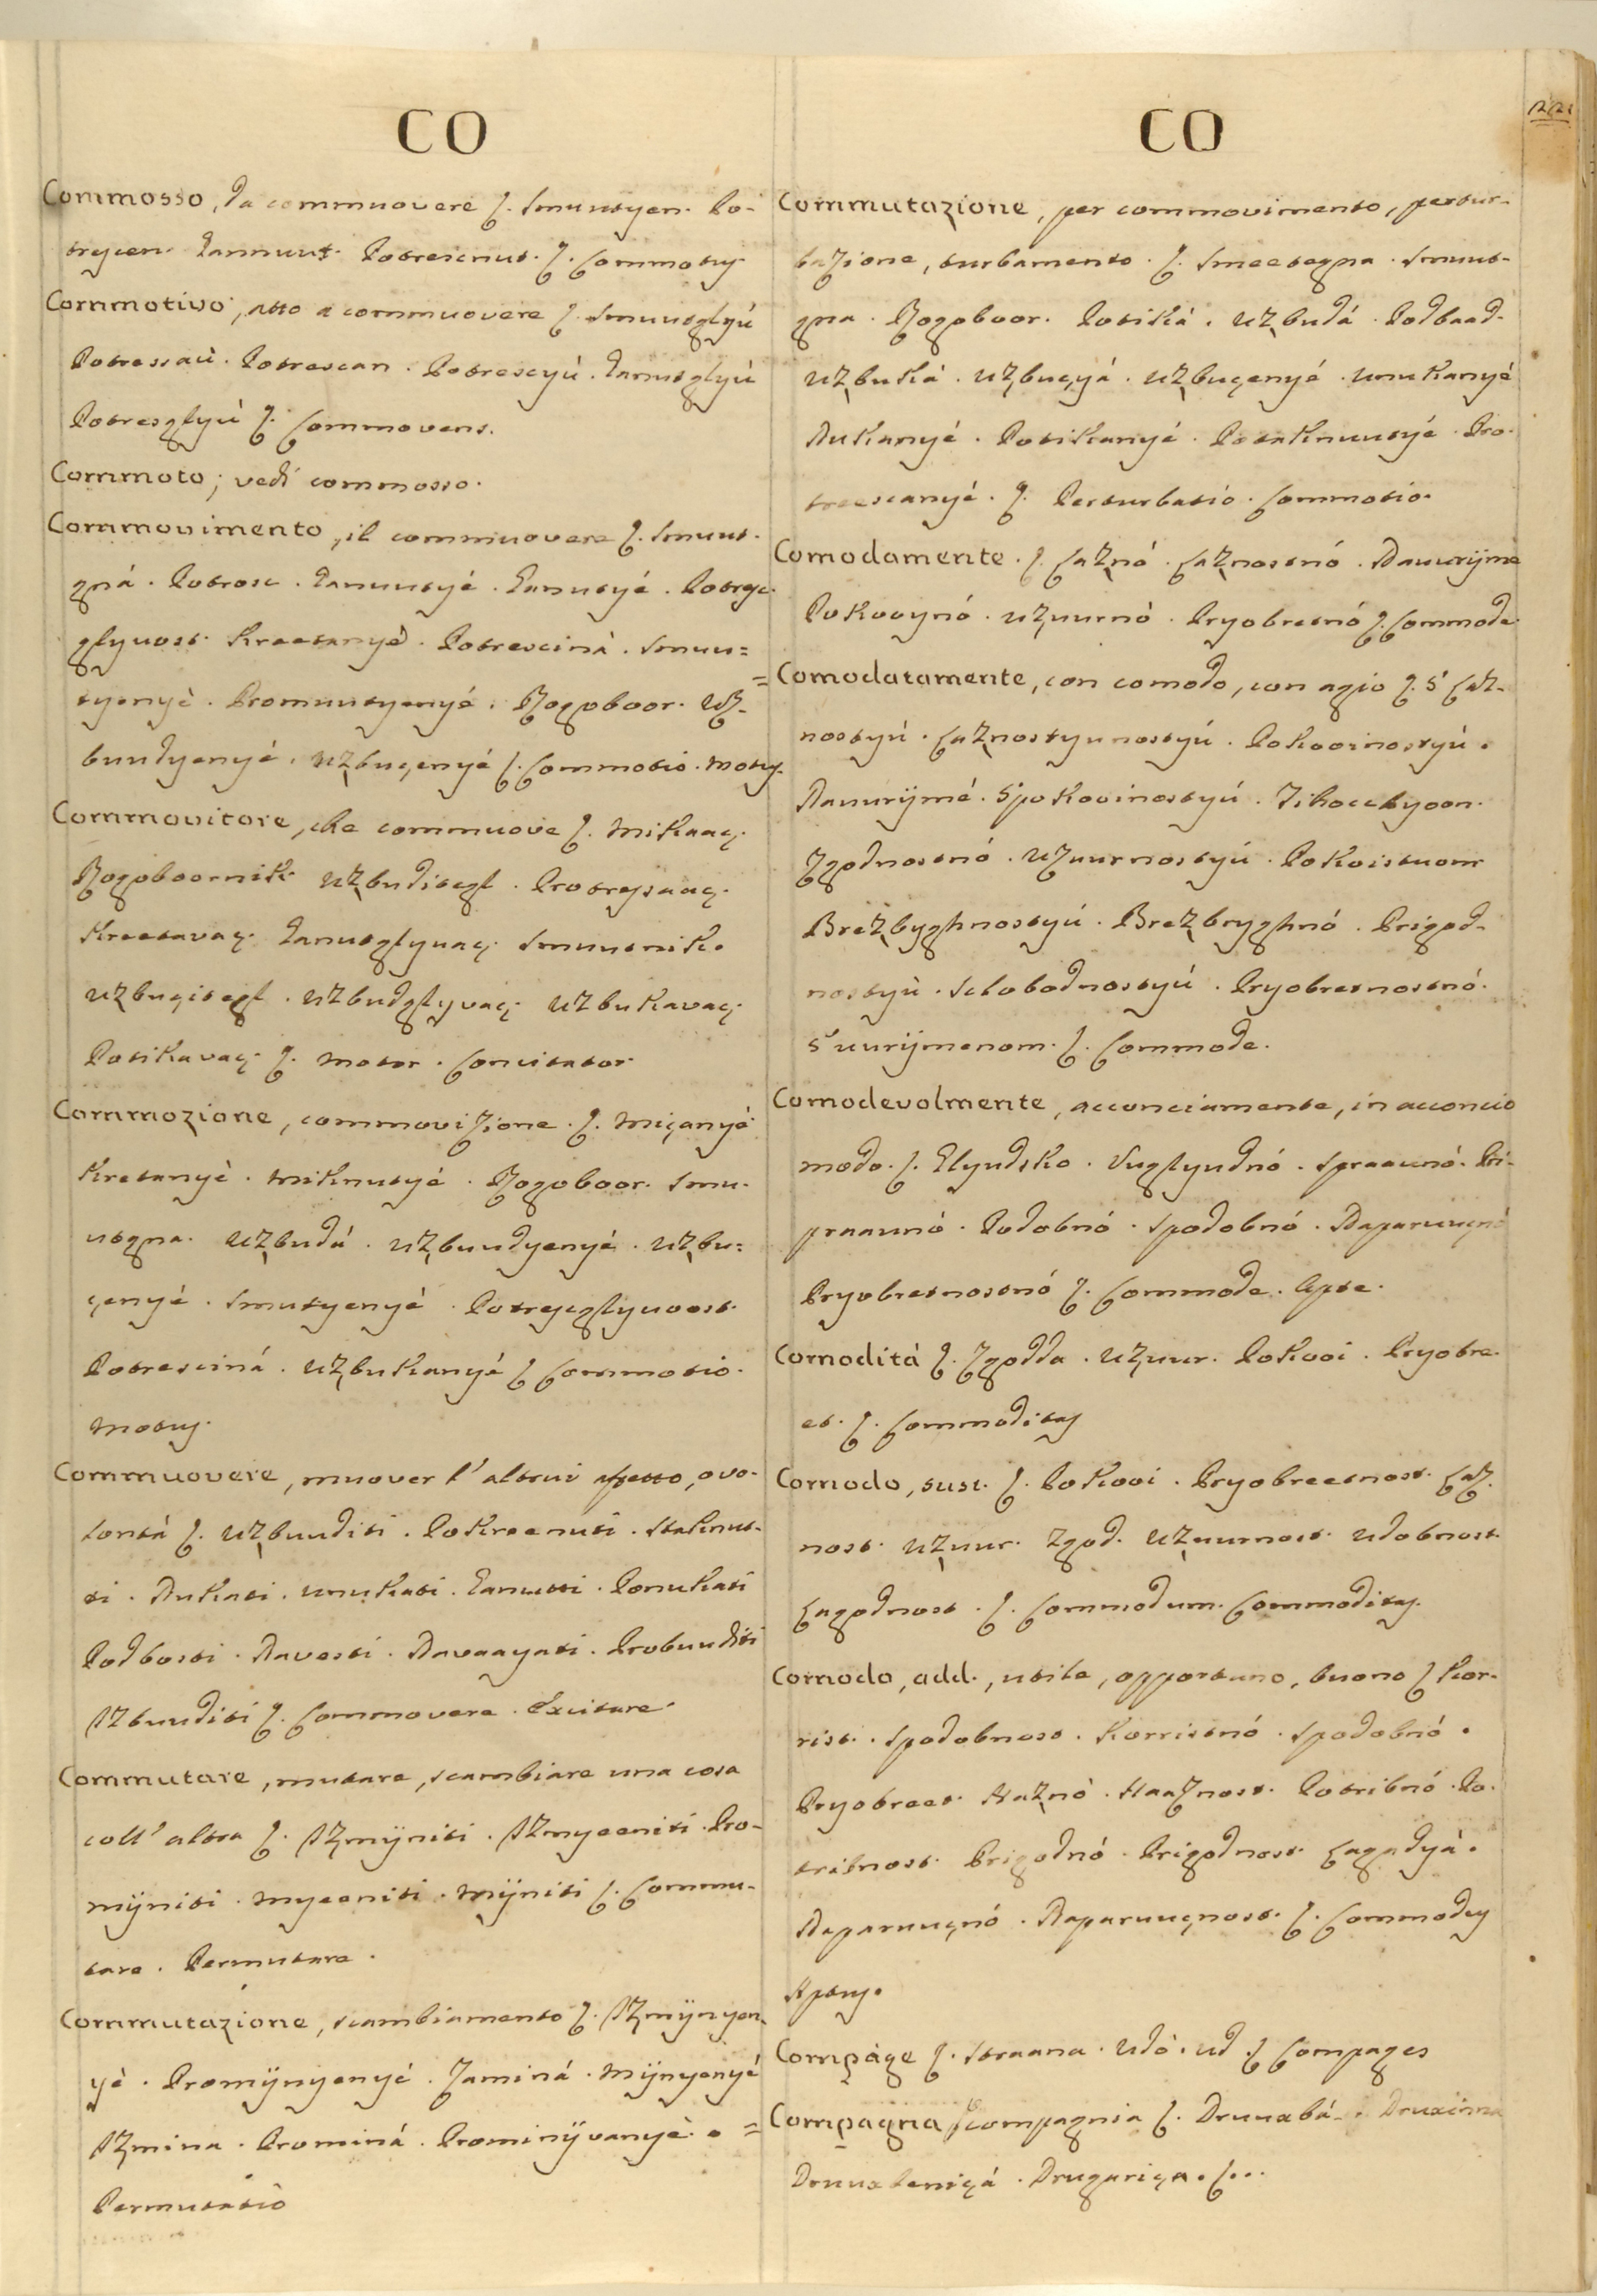 CO
Commosso, da commuovere ſ. Smuutyen. Po-
treſcen. Ganuut. Potreſcnut. ſ. Commotus
Commotivo, atto a commuovere ſ. Smuutglyú
Potressaú. Potrescan. Potrescyú. Ganutglyú
Potresglyú ſ. Commovens.
Commoto; vedi commosso.
Commovimento, il commuovere ſ. Smuut-
gná. Potrosc. Ganuutyé. Ganutyé. Potresc-
glyuost. Kreetanyé. Potresciná. Smuu=
tyenyé. Promuutyenyé. Rogoboor. Uz-
buudyenyé. Uzbuçenyé ſ. Commotio. Motus.
Commovitore, che commuove ſ. Mikaaç.
Rogoboornik. Uzbuditegl. Protresaaç.
Kreetavaç. Ganutglyvaç. Smuutnik.
Uzbuçitegl. Uzbudglyvaç. Uzbukavaç.
Potikavaç. ſ. Motor. Concitator.
Commozione, commovizione. ſ. Miçanyé
Kretanyé. Miknutyé. Rogoboor. Smu-
utgna. Uzbudá. Uzbuudyenyé. Uzbu=
çenyé. Smutyenyé. Potresglyuost.
Potresciná. Uzbukanyé ſ. Commotio.
Motus.
Commuovere, muover l'altrui affetto, o vo-
lontà ſ. Uzbuuditi. Pokreenuti. Staknut-
ti. Nukati. Unukati. Ganutti. Ponukati
Podbosti. Navesti. Navaayati. Probuuditi
Izbuuditi ſ. Commovere. Excitare.
Commutare, mutare, scambiare una cosa
coll'altra ſ. Izmijniti. Izmyeeniti. Pro-
mijniti. Myeeniti. Mijniti ſ. Commu-
tare. Permutare.
Commutazione, scambiamento ſ. Izmijnyen-
yé. Promijnyenyé. Zaminá. Mijnyenyé
Izmina. Prominá. Prominijvanyé.
Permutatio
CO
121
Commutazione, per commovimento, pertur-
bazione, turbamento. ſ. Smeetegna. Smuut-
gna. Rogoboor. Potiká. Uzbudá. Podbaad.
Uzbuká. Uzbuçyá. Uzbuçenyé. Unukanyé
Nukanyé. Potikanyé. Potaknuutyé. Po-
treescanyé. ſ. Perturbatio. Commotio.
Comodamente. ſ. Laznó. Laznostnó. Nauurijme
Pokooynó. Uzuurnó. Pryobretnó ſ. Commode
Comodatamente, con comodo, con agio ſ. S' Laz-
nostyú. Laznostyunostyú. Pokooinostyú.
Nauurijmé. S'pokooinostyú. Tihoctyoon.
Zgodnostnó. Uzuurnostyú. Pokoistuom
Brezbyghnostyú. Brezbryghnó. Prigod-
nostyú. Slobodnostyú. Pryobretnostnó.
S'uurijmenom. ſ. Commode.
Comodevolmente, acconciamente, in acconcio
modo. ſ. Glyudsko. Vuglyudnó. Spraaunó. Pri-
praaunó. Podobnó. Spodobnó. Naparuuçnó
Pryobretnostnó ſ. Commode. Apte.
Comodità ſ. Zgodda. Uzuur. Pokooi. Pryobre-
et. ſ. Commoditas
Comodo, sust. ſ. Pokooi. Pryobreetnost. Laz-
nost. Uzuur. Zgod. Uzuurnost. Udobnost
Lagodnost. ſ. Commodum. Commoditas.
Comodo, add., utile, opportuno, buono ſ. Kor-
rist. Spodobnost. Korristnó. Spodobnó.
Pryobreet. Haznó. Haaznost. Potribnó. Po-
tribnost. Prigodnó. Prigodnost. Lagodyá.
Naparuuçnó. Naparuuçnost. ſ. Commodus
Aptus.
Compàge ſ. Straana. Udó. Ud. ſ. Compages
Compagna, compagnia ſ. Druuxbá. Druxinna
Druuxbeniçá. Drugariça. ſ...